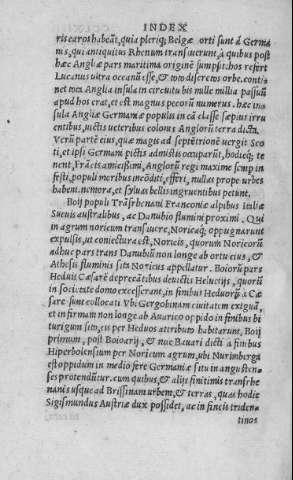 INDEX
ris caros habeāt, quia pleriq; Belgæ orti sunt à Germa
nis, qui antiquitus Rhenum transiuerunt, à quibus post
hæc Angliæ pars maritima originē sumpsit. hos refert
Lucanus ultra oceanū esse, & toto discretos orbe. conti
net tota Anglia insula in circuitu bis mille millia passuū
apud hos crat, et est magnus pecorū numerus. hæc in
sula Angliæ Germaniæ populus in eā classe sæpius irru
entibus, uictis ueteribus colonis Anglorū terra dicta.
Verū parte eius, quæ magis ad septētrionē uergit Sco
ti, et ipsi Germani pictis admistis occuparūt, hodieq; te
nent, Frācis amicissimi, Anglorū regi maxime semp in
festi, populi moribus incōditi, efferi, nullas prope urbes
habent. nemora, et syluas bellis ingruentibus petunt.
Boij populi Trāsrhenani Franconiæ alpibus Italiæ
Sueuis australibus, ac Danubio flumini proximi. Qui
in agrum noricum transiuere, Noricāq; oppugnarunt
expulsis, ut coniectura est, Noricis, quorum Noricorū
adhuc pars trans Danubiū non longe ab ortu eius, &
Athesis fluminis sita Noricus appellatur. Boiorū pars
Heduis Cæsarē deprecātibus deuictis Heluetijs, quorū
in societate domo excesserant, in finibus Heduorū à Cæ
sare sunt collocati Vbi Gergobinam ciuitatem exiguā,
et infirmam non longe ab Auarico oppido in finibus bi
turigum sitū, eis per Heduos attributo habitarunt, Boij
primum, post Boioarij, & nūc Bauari dicti à finibus
Hiperboiensium per Noricum agrum, ubi Nurimberga
est oppidum in medio fere Germaniæ situ in angusten-
ses protendūtur. cum quibus, & alijs finitimis transrhe
nanis usque ad Brissinam urbem, & terras, quas hodie
Sigismundus Austriæ dux possidet, ac in fincis triden-
tinos